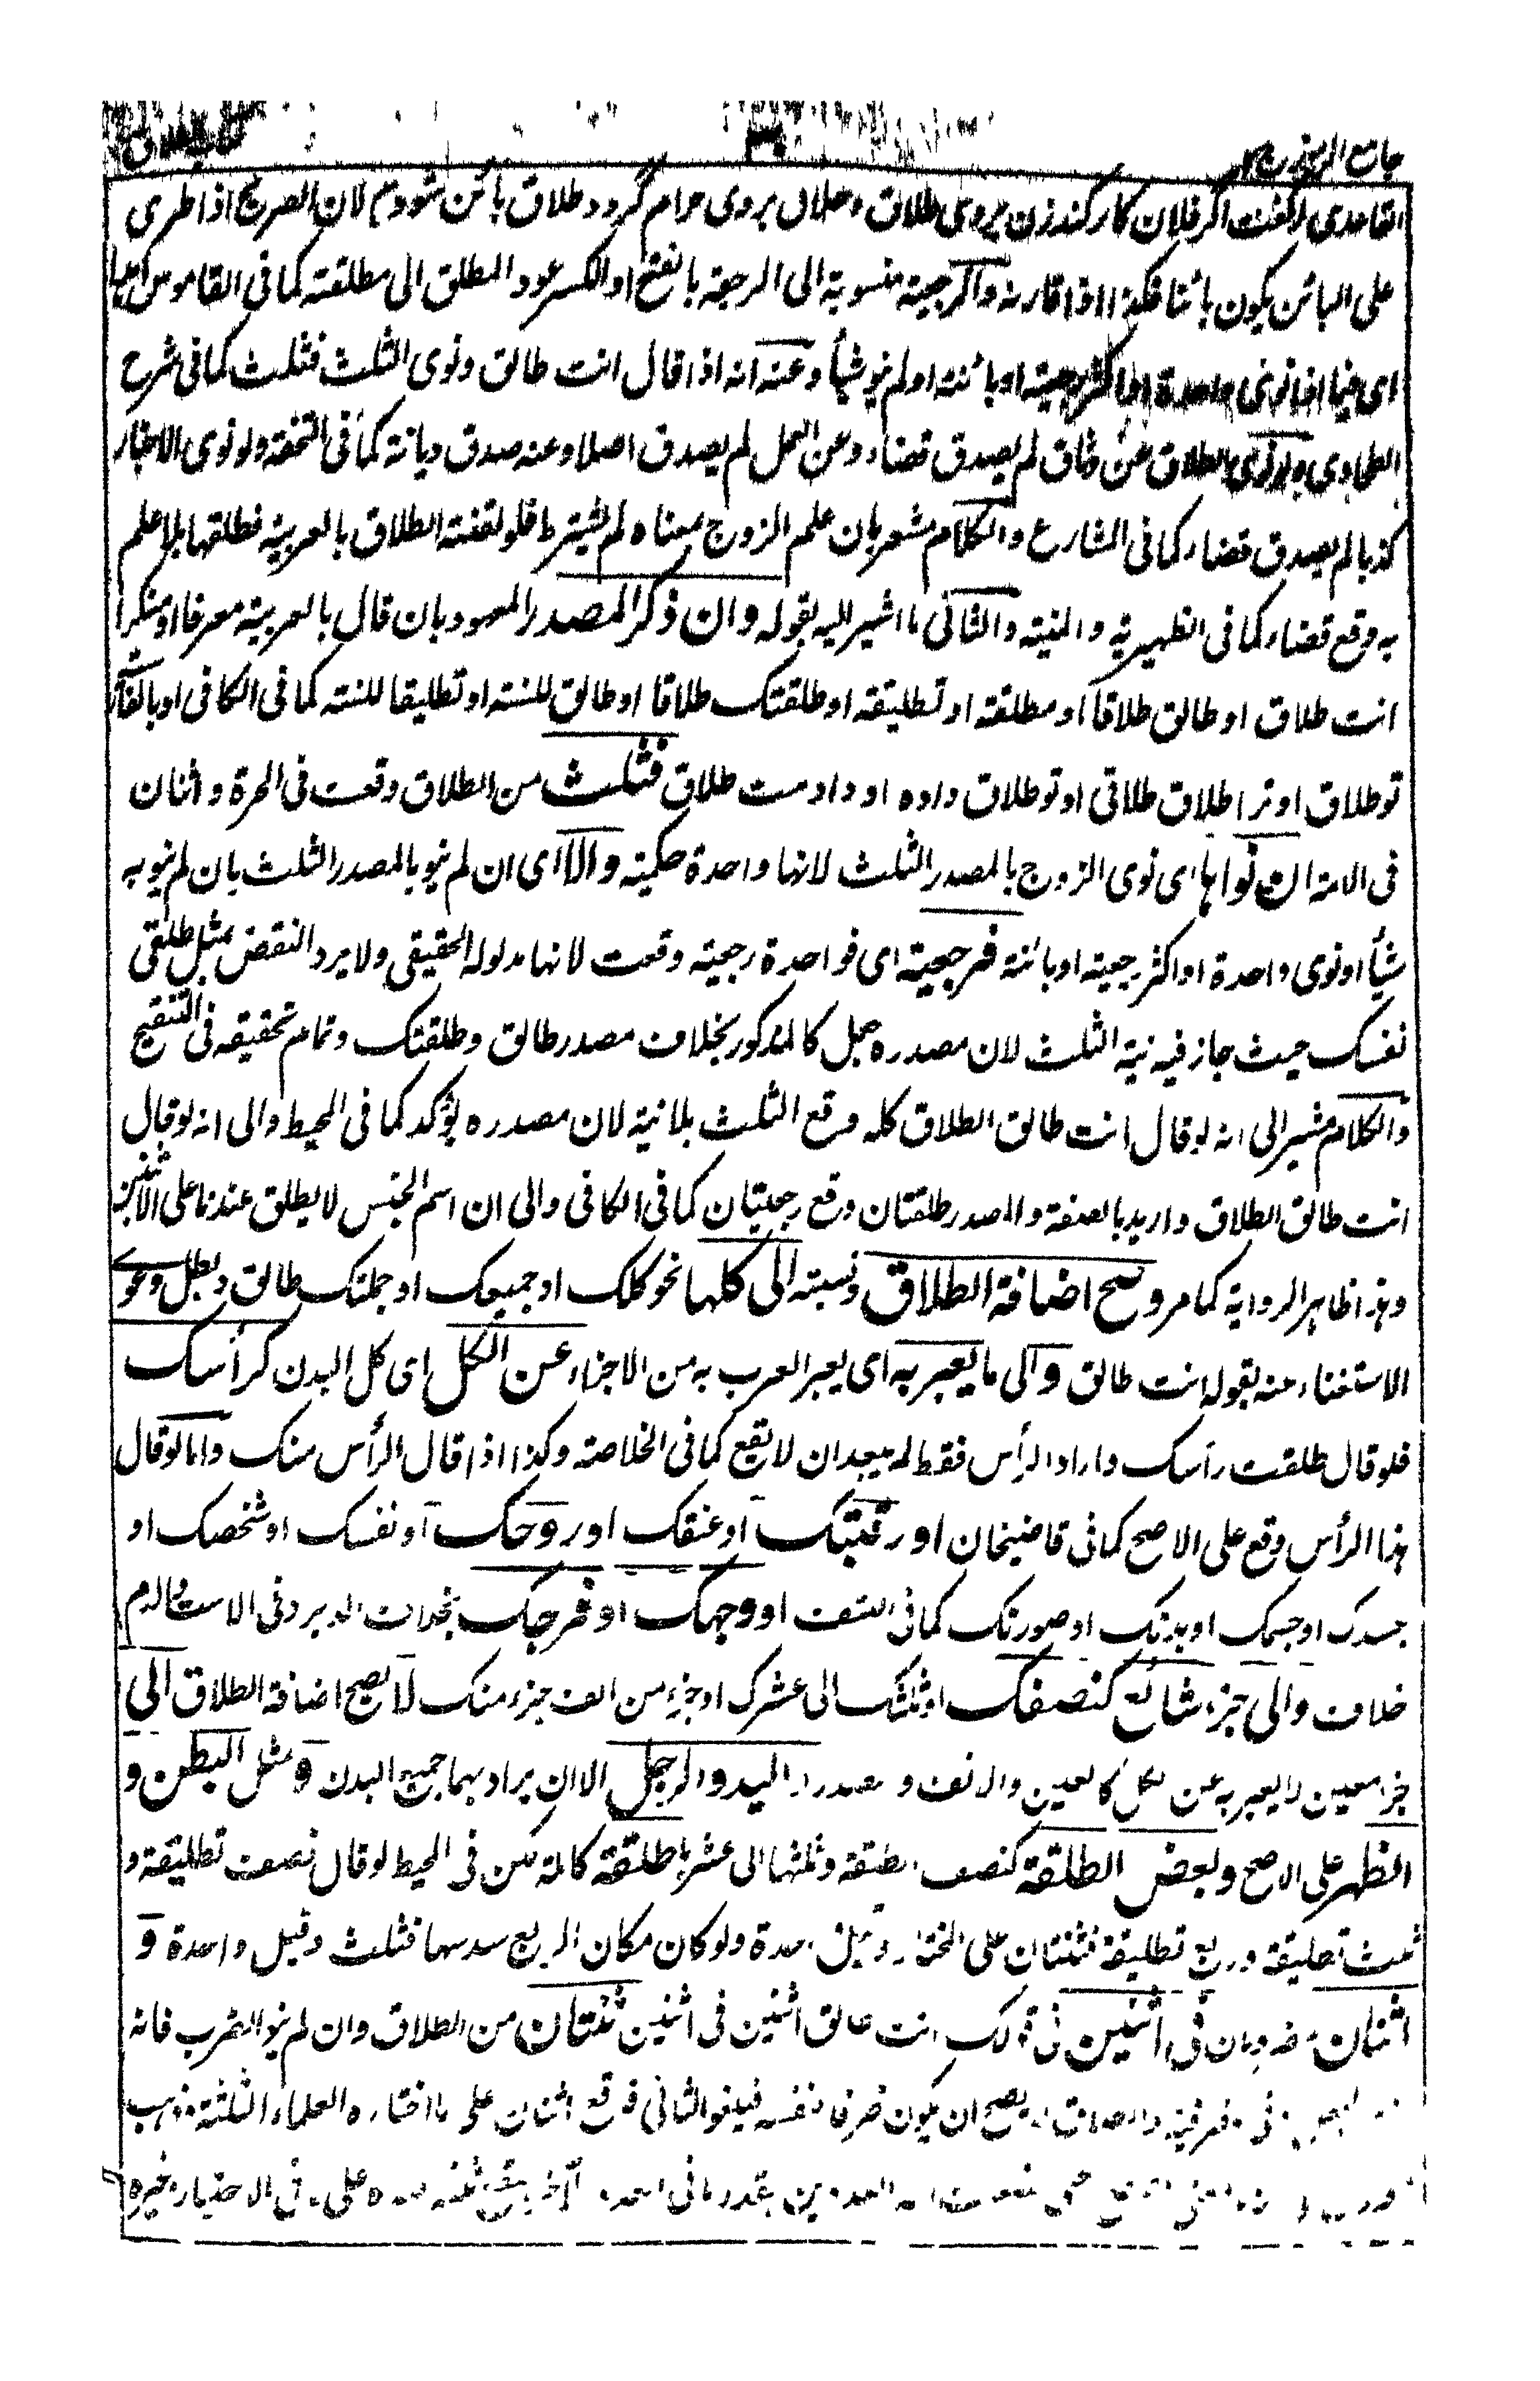 جامع الرموز ج٢ كتاب الطلاق
القاعدى لو گفت اگر فلان كار كند زن بروى طلاق وحلال بروى حرام گردد طلاق بائن شود لان الصريح اذا طرى
على البائن يكون بائنا فكذا اذا قارنه والرجعية منسوبة الى الرجعة بالفتح او الكسر عود المطلق الى مطلقته كما فى القاموس
اى فيما اذا نوى واحدة او اكثر رجعية او بائنة او لم ينو شيأ وعنه انه اذا قال انت طالق ونوى الثلث فثلث كما فى شرح
الطحاوى ولو نوى الطلاق عن وثاق لم يصدق قضاء وعن العمل لم يصدق اصلا وعنه صدق ديانة كما فى التحفة ولو نوى الاخبار
كذبا لم يصدق قضاء كما فى المشارع والكلام مشعر بان علم الزوج معناه لم يشترط فلو لقنته الطلاق بالعربية فطلقها بلا علم
به وقع قضاء كما فى الظهيرية والمنية والثانى ما اشير اليه بقوله وان ذكر المصدر المعهود بان قال بالعربية معرفا او منكرا
انت طلاق او طالق طلاقا او مطلقة او تطليقة او طلقتك طلاقا او طالق للسنة او تطليقا للسنة كما فى الكافى او بالفارسية
تو طلاق او ترا طلاق طلاقى او تو طلاق داده او دادمت طلاق فثلث من الطلاق وقعت فى الحرة واثنان
فى الامة ان نواها اى نوى الزوج بالمصدر الثلث لانها واحدة حكمية والا اى ان لم ينو بالمصدر الثلث بان لم ينو به
شيأ او نوى واحدة او اكثر رجعية او بائنة فرجعية اى فواحدة رجعية وقعت لانها مدلوله الحقيقى ولا يرد النقض بمثل طلقى
نفسك حيث جاز فيه نية الثلث لان مصدره جعل كالمذكور بخلاف مصدر طالق وطلقتك وتمام تحقيقه فى التنقيح
والكلام مشير الى انه لو قال انت طالق الطلاق كله وقع الثلث بلا نية لان مصدره يؤكد كما فى المحيط والى انه لو قال
انت طالق الطلاق واريد بالصفة والمصدر طلقتان وقع رجعيتان كما فى الكافى والى ان اسم الجنس لا يطلق عندنا على الاثنين
وهذا ظاهر الرواية كما مر وصح اضافة الطلاق ونسبته الى كلها نحو كلك او جميعك او جملتك طالق وبطل دعوى
الاستغناء عنه بقوله انت طالق والى ما يعبر به اى يعبر العرب به من الاجزاء عن الكل اى كل البدن كرأسك
فلو قال طلقت رأسك واراد الرأس فقط لم يبعد ان لا يقع كما فى الخلاصة وكذا اذا قال الرأس منك واما لو قال
هذا الرأس وقع على الاصح كما فى قاضيخان او رقبتك او عنقك او روحك او نفسك او شخصك او
جسدك او جسمك او بدنك او صورتك كما فى النتف او وجهك او فرجك بخلاف الدبر وفى الاست والدم
خلاف والى جزء شائع كنصفك او ثلثك الى عشرك او جزء من الف جزء منك لا يصح اضافة الطلاق الى
جزء معين لا يعبر به عن الكل كالعين والانف والصدر واليد والرجل الا ان يراد بهما جميع البدن ومثل البطن و
الظهر على الاصح وبعض الطلقة كنصف الطلقة وثلثها الى عشرها طلقة كاملة لكن فى المحيط لو قال نصف تطليقة و
ثلث تطليقة وربع تطليقة فثنتان على المختار وقيل واحدة ولو كان مكان الربع سدسها فثلث وقيل واحدة و
اثنان فى اثنين فى قولك انت طالق اثنين فى اثنين ثنتان من الطلاق وان لم ينو الضرب فانه
يصح ان يكون ظرفا لنفسه فيلغو الثانى فوقع اثنان على ما اختاره العلماء الثلثة
بقدر ما فى على ما فى الاختيار وغيره